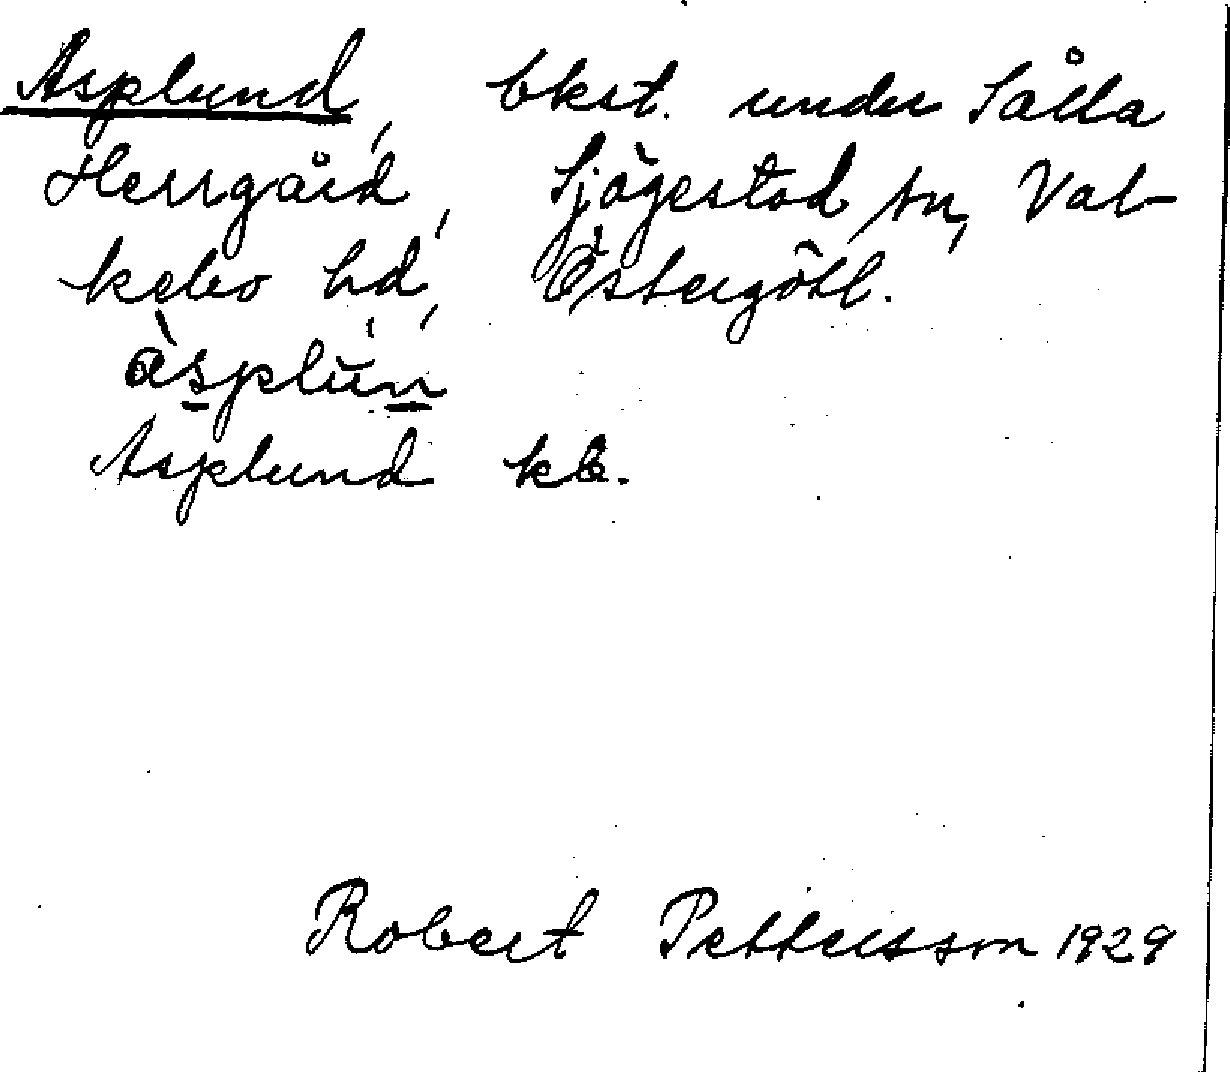 Asplund, bkst. under Sålla
Herrgård, Sjögestad sn, Val-
kebo hd, Östergötl.
àsplún
Asplund kb.
Robert Pettersson 1929